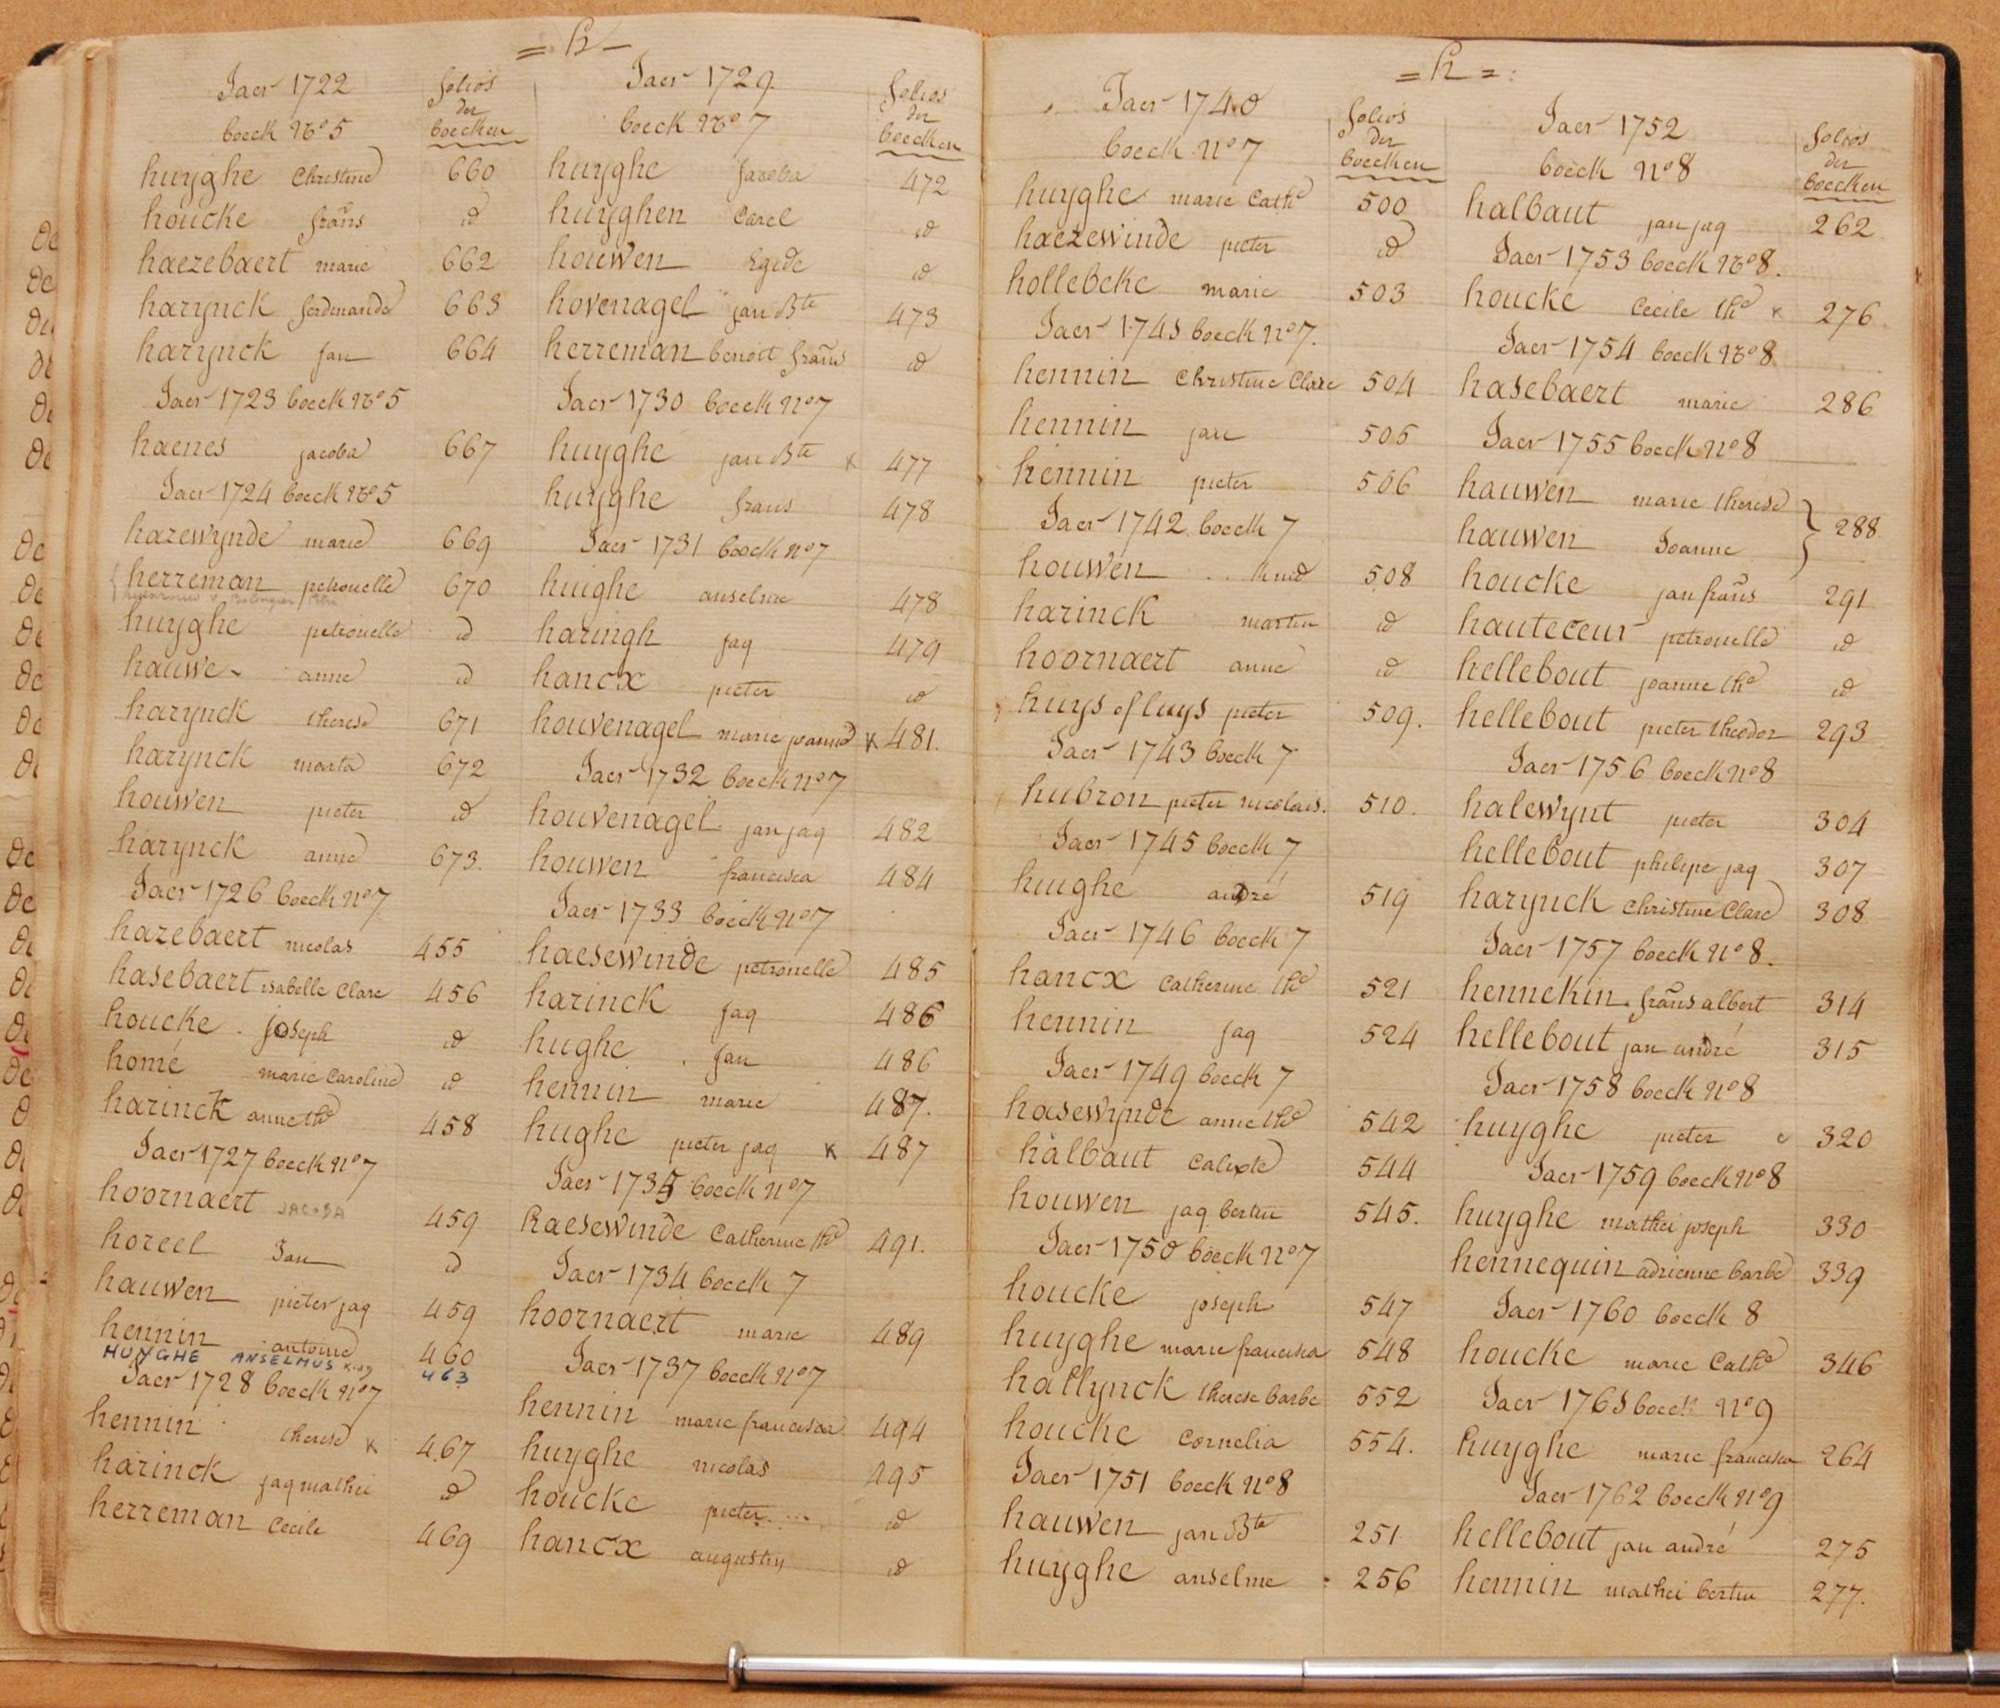 = h —
Jaer 1722
folios der boecken
boeck No 5
huyghe Christine 660
houcke frans id
haezebaert marie 662
harynck ferdinande 663
harynck Jan 664
Jaer 1723 boeck No 5
haenes jacoba 667
Jaer 1724 boeck No 5
hazewynde marie 669
herreman petronelle 670
huyghe petronelle id
hauwe anne id
harynck therese 671
harynck marta 672
houwen pieter id
harynck anne 673.
Jaer 1726 boeck No 7
hazebaert nicolas 455
hasebaert isabelle Clare 456
houcke joseph id
homé marie Caroline id
harinck anne the 458
Jaer 1727 boeck No 7
hoornaert JACOBA 459
horeel Jan id
hauwen pieter jaq 459
hennin antoine 460
HUYGHE ANSELMUS 463
Jaer 1728 boeck No 7
hennin therese K 467
harinck jaq mathei id
herreman Cecile 469
Jaer 1729.
folios der boecken
boeck No 7
huyghe Jacoba 472
huyghen Carel id
houwen Egide id
hovenagel jan Bte 473
herreman benoit frans id
Jaer 1730 boeck No 7
huyghe jan Bte K 477
huyghe frans 478
Jaer 1731 boeck No 7
huighe anselme 478
haringh jaq 479
hancx pieter id
houvenagel marie joanne K 481.
Jaer 1732 boeck No 7
houvenagel jan jaq 482
houwen francisca 484
Jaer 1733 boeck No 7
haesewinde petronelle 485
harinck jaq 486
hughe Jan 486
hennin marie 487.
hughe pieter jaq K 487
Jaer 1735 boeck No 7
haesewinde Catherine the 491.
Jaer 1734 boeck 7
hoornaert marie 489
Jaer 1737 boeck No 7
hennin marie francisca 494
huyghe nicolas 495
houcke pieter .... id
hancx augustin id
= h = :
Jaer 1740
folios der boecken
boeck No 7
huyghe marie Cathe 500
haezewinde pieter id
hollebeke marie 503
Jaer 1741 boeck No 7.
hennin Christine Clare 504
hennin jan 505
hennin pieter 506
Jaer 1742 boeck 7
houwen 508
harinck martin id
hoornaert anne id
huys of luys pieter 509.
Jaer 1743 boeck 7
hubron pieter nicolais. 510.
Jaer 1745 boeck 7
huighe andré 519
Jaer 1746 boeck 7
hancx Catherine the 521
hennin jaq 524
Jaer 1749 boeck 7
hasewynde anne the 542
halbaut Calixte 544
houwen jaq bertin 545.
Jaer 1750 boeck No 7
houcke joseph 547
huyghe marie francisca 548
hallynck therese barbe 552
houcke Cornelia 554.
Jaer 1751 boeck No 8
hauwen jan Bte 251
huyghe anselme 256
Jaer 1752
folios der boecken
boeck No 8
halbaut jan jaq 262
Jaer 1753 boeck No 8.
houcke Cecile the x 276
Jaer 1754 boeck No 8
hasebaert marie 286
Jaer 1755 boeck No 8
hauwen marie therese } 288
hauwen Joanne
houcke jan frans 291
hauteceur petronelle id
hellebout joanne the id
hellebout pieter theodor 293
Jaer 1756 boeck No 8
halewynt pieter 304
hellebout philipe jaq 307
harynck Christine Clare 308
Jaer 1757 boeck No 8.
hennekin frans albert 314
hellebout jan andré 315
Jaer 1758 boeck No 8
huyghe pieter 320
Jaer 1759 boeck No 8
huyghe mathei joseph 330
hennequin adrienne barbe 339
Jaer 1760 boeck 8
houcke marie Cathe 346
Jaer 1761 boeck No 9
huyghe marie francisca 264
Jaer 1762 boeck No 9
hellebout jan andré 275
hennin mathei bertin 277.